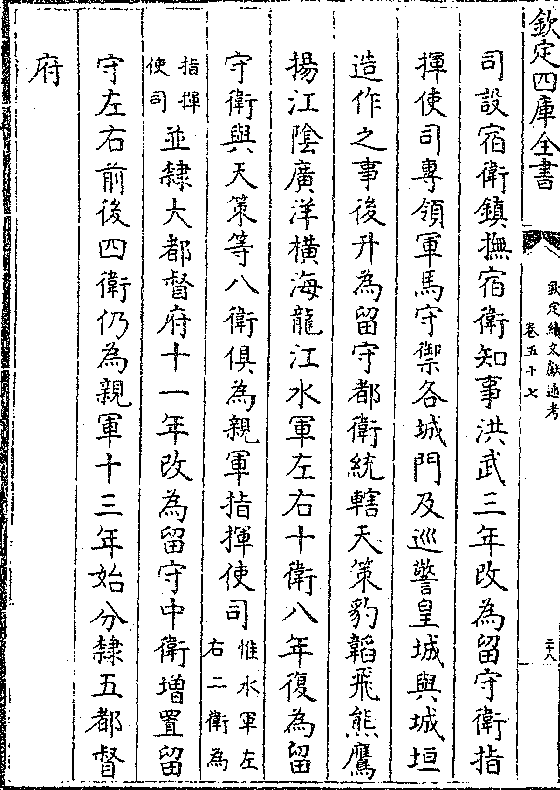 欽定四庫全書
欽定續文獻通考
卷五十七
二十八
司設宿衛鎮撫宿衛知事洪武三年改為留守衛指
揮使司專領軍馬守禦各城門及巡警皇城與城垣
造作之事後升為留守都衛統轄天策豹韜飛熊鷹
揚江陰廣洋橫海龍江水軍左右十衛八年復為留
守衛與天策等八衛俱為親軍指揮使司惟水軍左右二衛為
指揮使司並隸大都督府十一年改為留守中衛增置留
守左右前後四衛仍為親軍十三年始分隸五都督
府